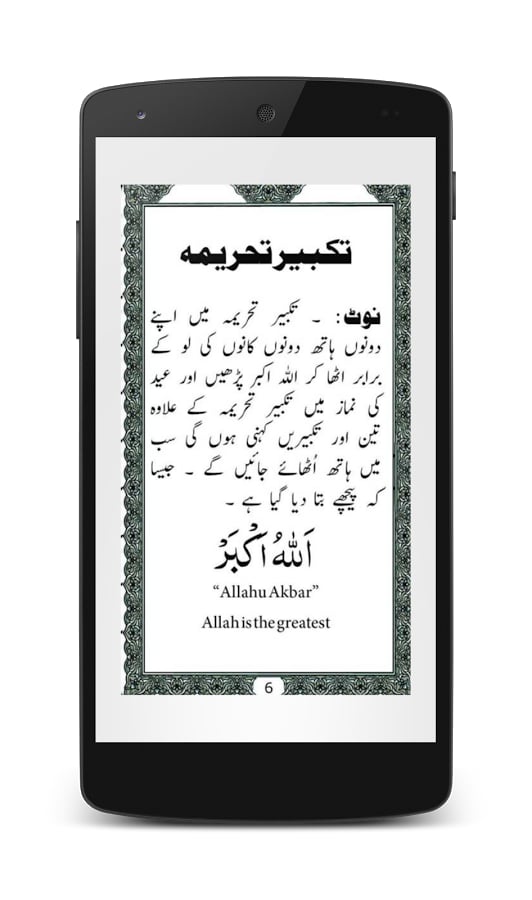 تکبیر تحریمہ
نوٹ: ۔ تکبیر تحریمہ میں اپنے
دونوں ہاتھ دونوں کانوں کی لو کے
برابر اٹھا کر اللہ اکبر پڑھیں اور عید
کی نماز میں تکبیر تحریمہ کے علاوہ
تین اور تکبیریں کہنی ہوں گی سب
میں ہاتھ اُٹھائے جائیں گے ۔ جیسا
کہ پیچھے بتا دیا گیا ہے ۔
اَللهُ اَكْبَرْ
“Allahu Akbar”
Allah is the greatest
6